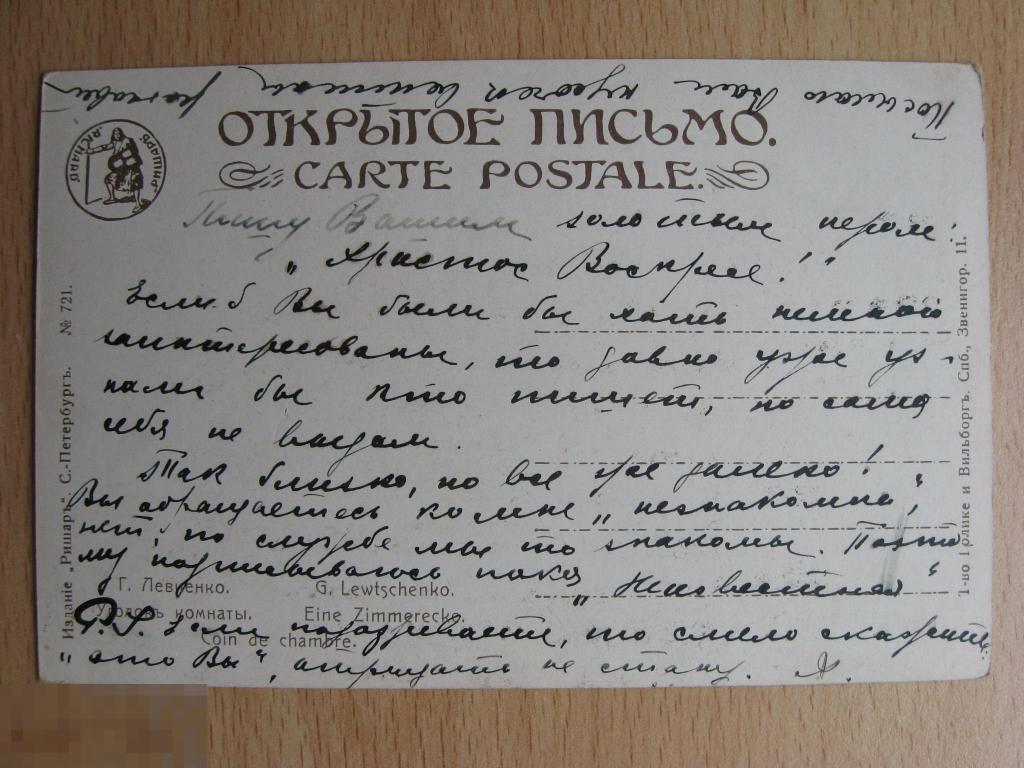 Посылаю Вам кусочек
ОТКРЫТОЕ ПИСЬМО.
CARTE POSTALE.
РИШАРЪ. RICHARD
Пишу Вашим золотым пером:
„Христос Воскрес!“
Если б Вы были бы хоть немного
заинтересованы, то давно уже уз-
нали бы кто пишет, но сама
себя не выдам.
Так близко, но все же далеко!
Вы обращаетесь ко мне „незнакомка“,
нет, по службе мы то знакомы. Поэто
му подписываюсь пока „Неизвестная“
P.S. Если подозреваете, то смело скажите
„это Вы“, отрицать не стану. А.
Г. Левченко.
Уголокъ комнаты.
G. Lewtschenko.
Eine Zimmerecke.
Coin de chambre.
Изданіе „Ришаръ“ С.-Петербургъ. № 721.
Т-во Голике и Вильборгъ. Спб., Звенигор. 11.